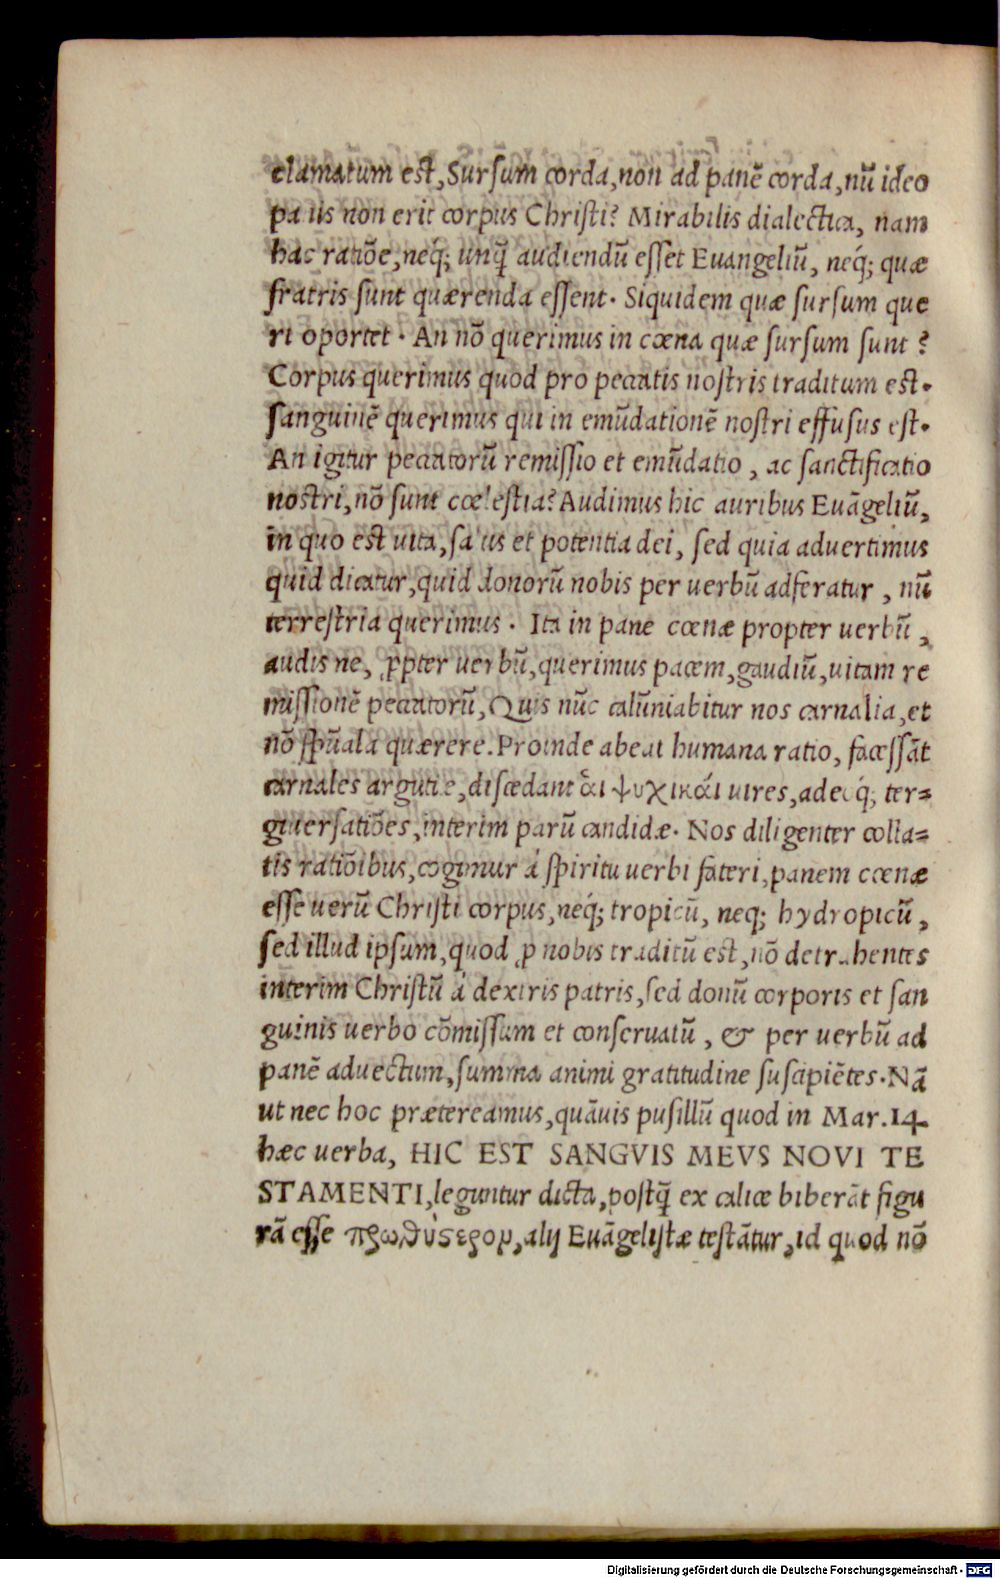 clamatum est, Sursum corda, non ad panē corda, nū ideo
pa is non erit corpus Christi? Mirabilis dialectica, nam
hac ratiōe, neq́; unq̄ audiendū esset Euangeliū, neq́; quæ
fratris sunt quærenda essent. Siquidem quæ sursum que
ri oportet. An nō querimus in cœna quæ sursum sunt?
Corpus querimus quod pro peccatis nostris traditum est.
sanguinē querimus qui in emūdationē nostri effusus est.
An igitur peccatorū remissio et emūdatio, ac sanctificatio
nostri, nō sunt cœlestia? Audimus hic auribus Euāgeliū,
in quo est uita, salus et potentia dei, sed quia aduertimus
quid dicatur, quid donorū nobis per uerbū adferatur, nū
terrestria querimus. Ita in pane cœnæ propter uerbū,
audis ne, ꝓpter uerbū, querimus pacem, gaudiū, uitam re
missionē peccatorū, Quis nūc calūniabitur nos carnalia, et
nō spūalia quærere. Proinde abeat humana ratio, facessāt
carnales argutiæ, discedant ἁι ψυχικάι uires, adeoq́; ter=
giuersatiōes, interim parū candidæ. Nos diligenter colla=
tis ratiōibus, cogimur á spiritu uerbi fateri, panem cœnæ
esse uerū Christi corpus, neq́; tropicū, neq; hydropicū,
sed illud ipsum, quod ꝓ nobis traditū est, nō detrahentes
interim Christū á dextris patris, sed donū corporis et san
guinis uerbo cōmissum et conseruatū, & per uerbū ad
panē aduectum, summa animi gratitudine suscipiētes. Nā
ut nec hoc prætereamus, quāuis pusillū quod in Mar. 14.
hæc uerba, HIC EST SANGVIS MEVS NOVI TE
STAMENTI, leguntur dicta, postq̄ ex calice biberāt figu
rā esse πρωθύςερον, alij Euāgelistæ testātur, id quod nō
Digitalisierung gefördert durch die Deutsche Forschungsgemeinschaft - DFG